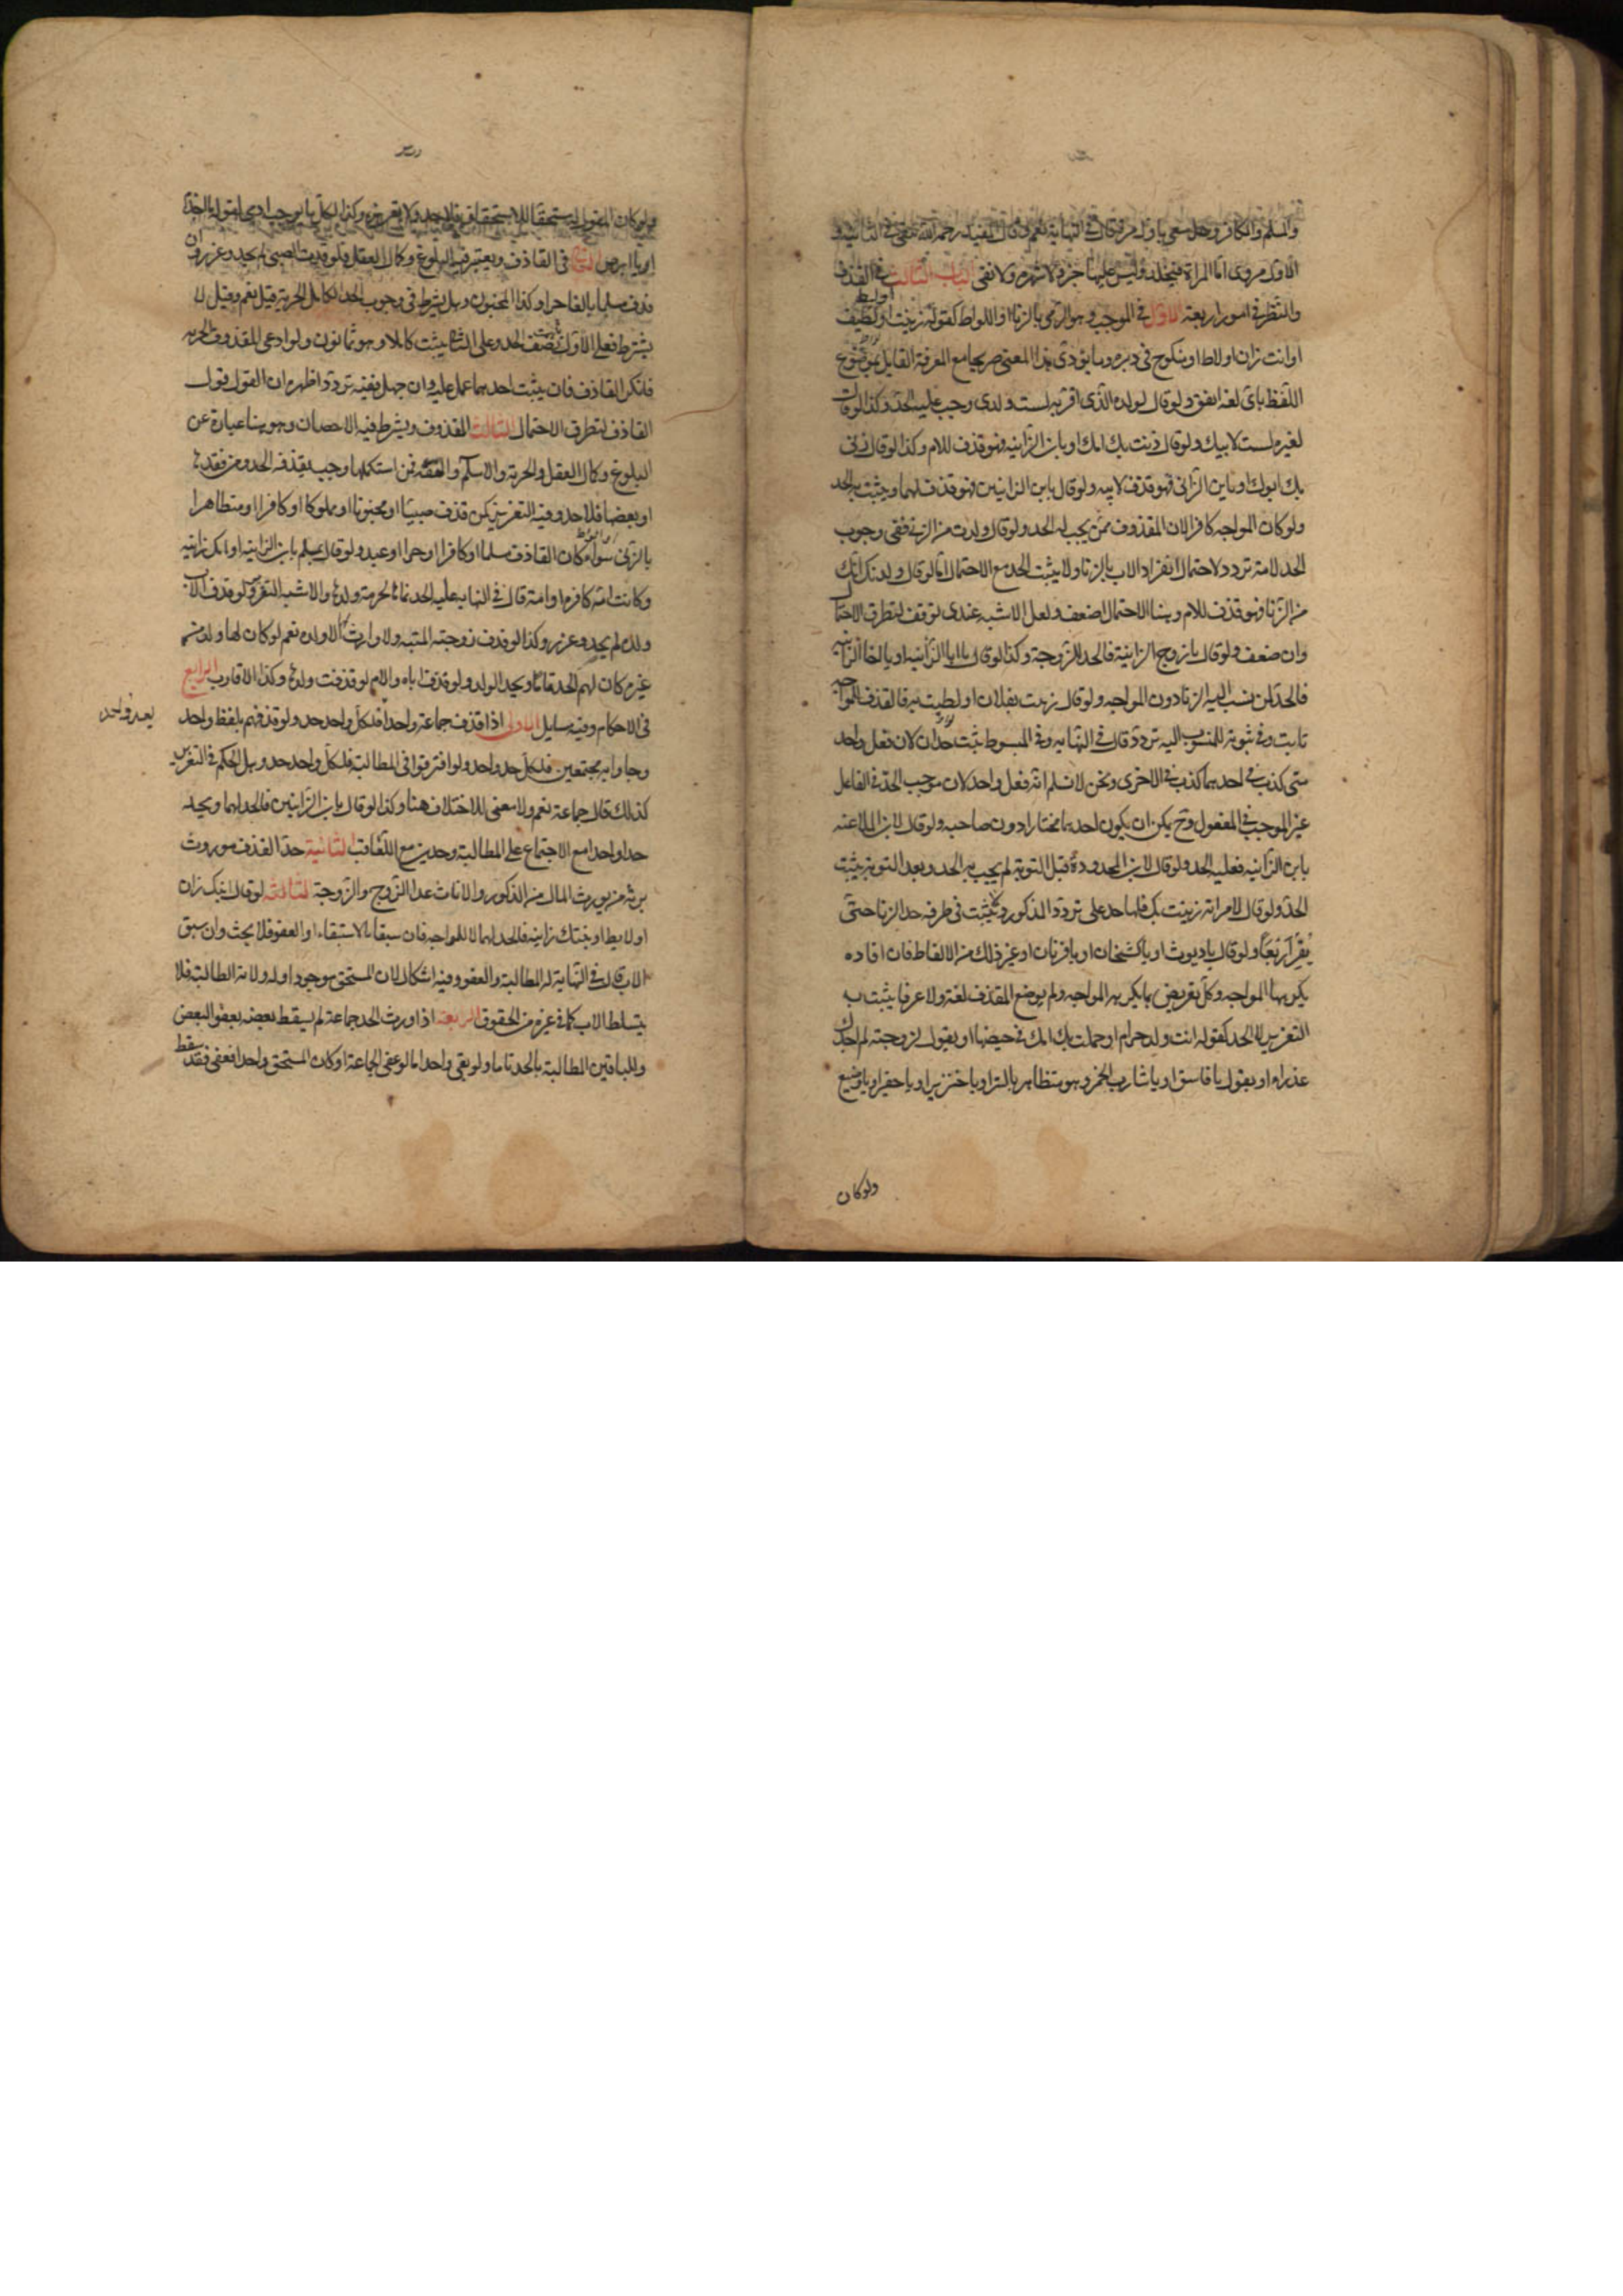 والمسلم والكافر وهل يسعى باول مرة قال في النهاية نعم وقال المفيد رحمه الله عفى في الثانية و
الاول مروى اما المراة فيجلد وليس عليها جز ولا شهره ولا نفى الباب الثالث في القذف
والنظر في امور اربعة الاول في الموجب وهو الرمى بالزنا او اللواط كقوله زنيت او لطت او ليط بك
او انت زان او لاط او منكوح في دبره وما يؤدى هذا المعنى صريحا مع المعرفة القايل بموضوع
اللفظ باى لغة اتفق ولو قال لولده الذى اقر به لست ولدى وجب عليه الحد وكذا لو قال
لغيره لست لابيك ولو قال زنت بك امك او يا بن الزانيه فهو قذف للام وكذا لو قال زنى
بك ابوك او يابن الزانى فهو قذف لابيه ولو قال يا بن الزانيين فهو قذف لهما ويثبت به الحد
ولو كان المواجه كافرا لان المقذوف ممن يجب له الحد ولو قال ولدت من الزنى ففى وجوب
الحد لامه تردد لاحتمال انفراد الاب بالزنا ولا يثبت الحد مع الاحتمال اما لو قال ولدتك امك
من الزنا فهو قذف للام وهنا الاحتمال اضعف ولعل الاشبه عندى توقف لتطرق الاحتمال
وان ضعف ولو قال يا زوج الزانية فالحد للزوجة وكذا لو قال يا ابا الزانيه او يا اخا الزانيه
فالحد لمن نسب اليه الزنا دون المواجه ولو قال زنيت بفلان او لطت به فالقذف للمواجه
ثابت وفي ثبوته للمنسوب اليه تردد قال في النهايه وفي المبسوط يثبت حدان لانه فعل واحد
متى كذب في احدهما كذب في الاخرى ونحن لا نسلم انه فعل واحد لان موجب الحد في الفاعل
غير الموجب في المفعول وح يمكن ان يكون احدهما مختارا دون صاحبه ولو قال لابن الملاعنه
يابن الزانيه فعليه الحد ولو قال لابن المحدودة قبل التوبة لم يجب به الحد وبعد التوبة يثبت
الحد ولو قال لامراته زنيت بك فلها حد على تردد المذكور ولا يثبت في طرفه حد الزنا حتى
يقر اربعا ولو قال يا ديوث او يا كشخان او يا قرنان او غير ذلك من الالفاظ فان افاده
يكره بها المواجه وكل تعريض بما يكرهه المواجه ولم يوضع للقذف لغة ولا عرفا يثبت به
التعزير لا الحد كقوله انت ولد حرام او حملت بك امك في حيضها او يقول لزوجته لم اجدك
عذراء او يقول يا فاسق او يا شارب الخمر وهو متظاهر بالستر او يا خنزير او يا حقير او يا وضيع
ولو كان
ولو كان المقول له مستحقا للاستخفاف فلا حد ولا تعزير وكذا كل ما يوجب اذى كقوله يا اجذم
او يا ابرص الثاني في القاذف ويعتبر فيه البلوغ وكمال العقل فلو قذف الصبى لم يحد وعزر وان
قذف مسلما بالغا حرا وكذا المجنون وهل يشترط في وجوب الحد الكامل الحرية قيل نعم وقيل لا
يشترط فعلى الاول يثبت نصف الحد وعلى الثانى يثبت كاملا وهو ثمانون ولو ادعى المقذوف الحريه
فانكر القاذف فان يثبت احدهما عمل عليه وان جهل ففيه تردد اظهره ان القول قول
القاذف لتطرق الاحتمال الثالث المقذوف ويشترط فيه الاحصان وهو هنا عبارة عن
البلوغ وكمال العقل والحرية والاسلام والعفة فمن استكملها وجب بقذفه الحد ومن فقدها
او بعضها فلا حد وفيه التعزير كمن قذف صبيا او مجنونا او مملوكا او كافرا او متظاهرا
بالزنى سواء كان القاذف مسلما او كافرا او حرا او عبدا ولو قال لمسلم يا بن الزانيه او امك زانيه
وكانت امه كافرة او امة قال في النهايه عليه الحد تماما لحرمة ولدها والاشبه التعزير ولو قذف الاب
ولده لم يحد وعزر وكذا لو قذف زوجته الميتة ولا وارث الا ولده نعم لو كان لها ولد من
غيره كان لهم الحد تماما ويحد الولد ولو قذف اباه والام لو قذفت ولدها وكذا الاقارب الرابع
في الاحكام وفيه مسايل الاولى اذا قذف جماعة واحدا فلكل واحد حد ولو قذفهم بلفظ واحد
بعد واحد
وجاوا به مجتمعين فلكل حد واحد ولو افترقوا في المطالبة فلكل واحد حد وهل الحكم في التعزير
كذلك قال جماعة نعم ولا معنى للاختلاف هنا وكذا لو قال يا بن الزانيين فالحد لهما ويحد
حدا واحدا مع الاجتماع على المطالبة وحدين مع التعاقب الثانية حد القذف موروث
يرثه من يورث المال من الذكور والاناث عدا الزوج والزوجة الثالثة لو قال ابنك زان
او لايط او بنتك زانيه فالحد لهما لا للمواجه فان سبقا بالاستيفاء او العفو فلا بحث وان سبق
الاب قال في النهاية له المطالبة والعفو وفيه اشكال لان المستحق موجود وله ولاية المطالبة فلا
يتسلط الاب كما في غيره من الحقوق الرابعة اذا ورث الحد جماعة لم يسقط بعضه بعفو البعض
وللباقين المطالبة بالحد تاما ولو بقى واحد اما لو عفى الجماعة او كان المستحق واحدا فعفى فقد سقط